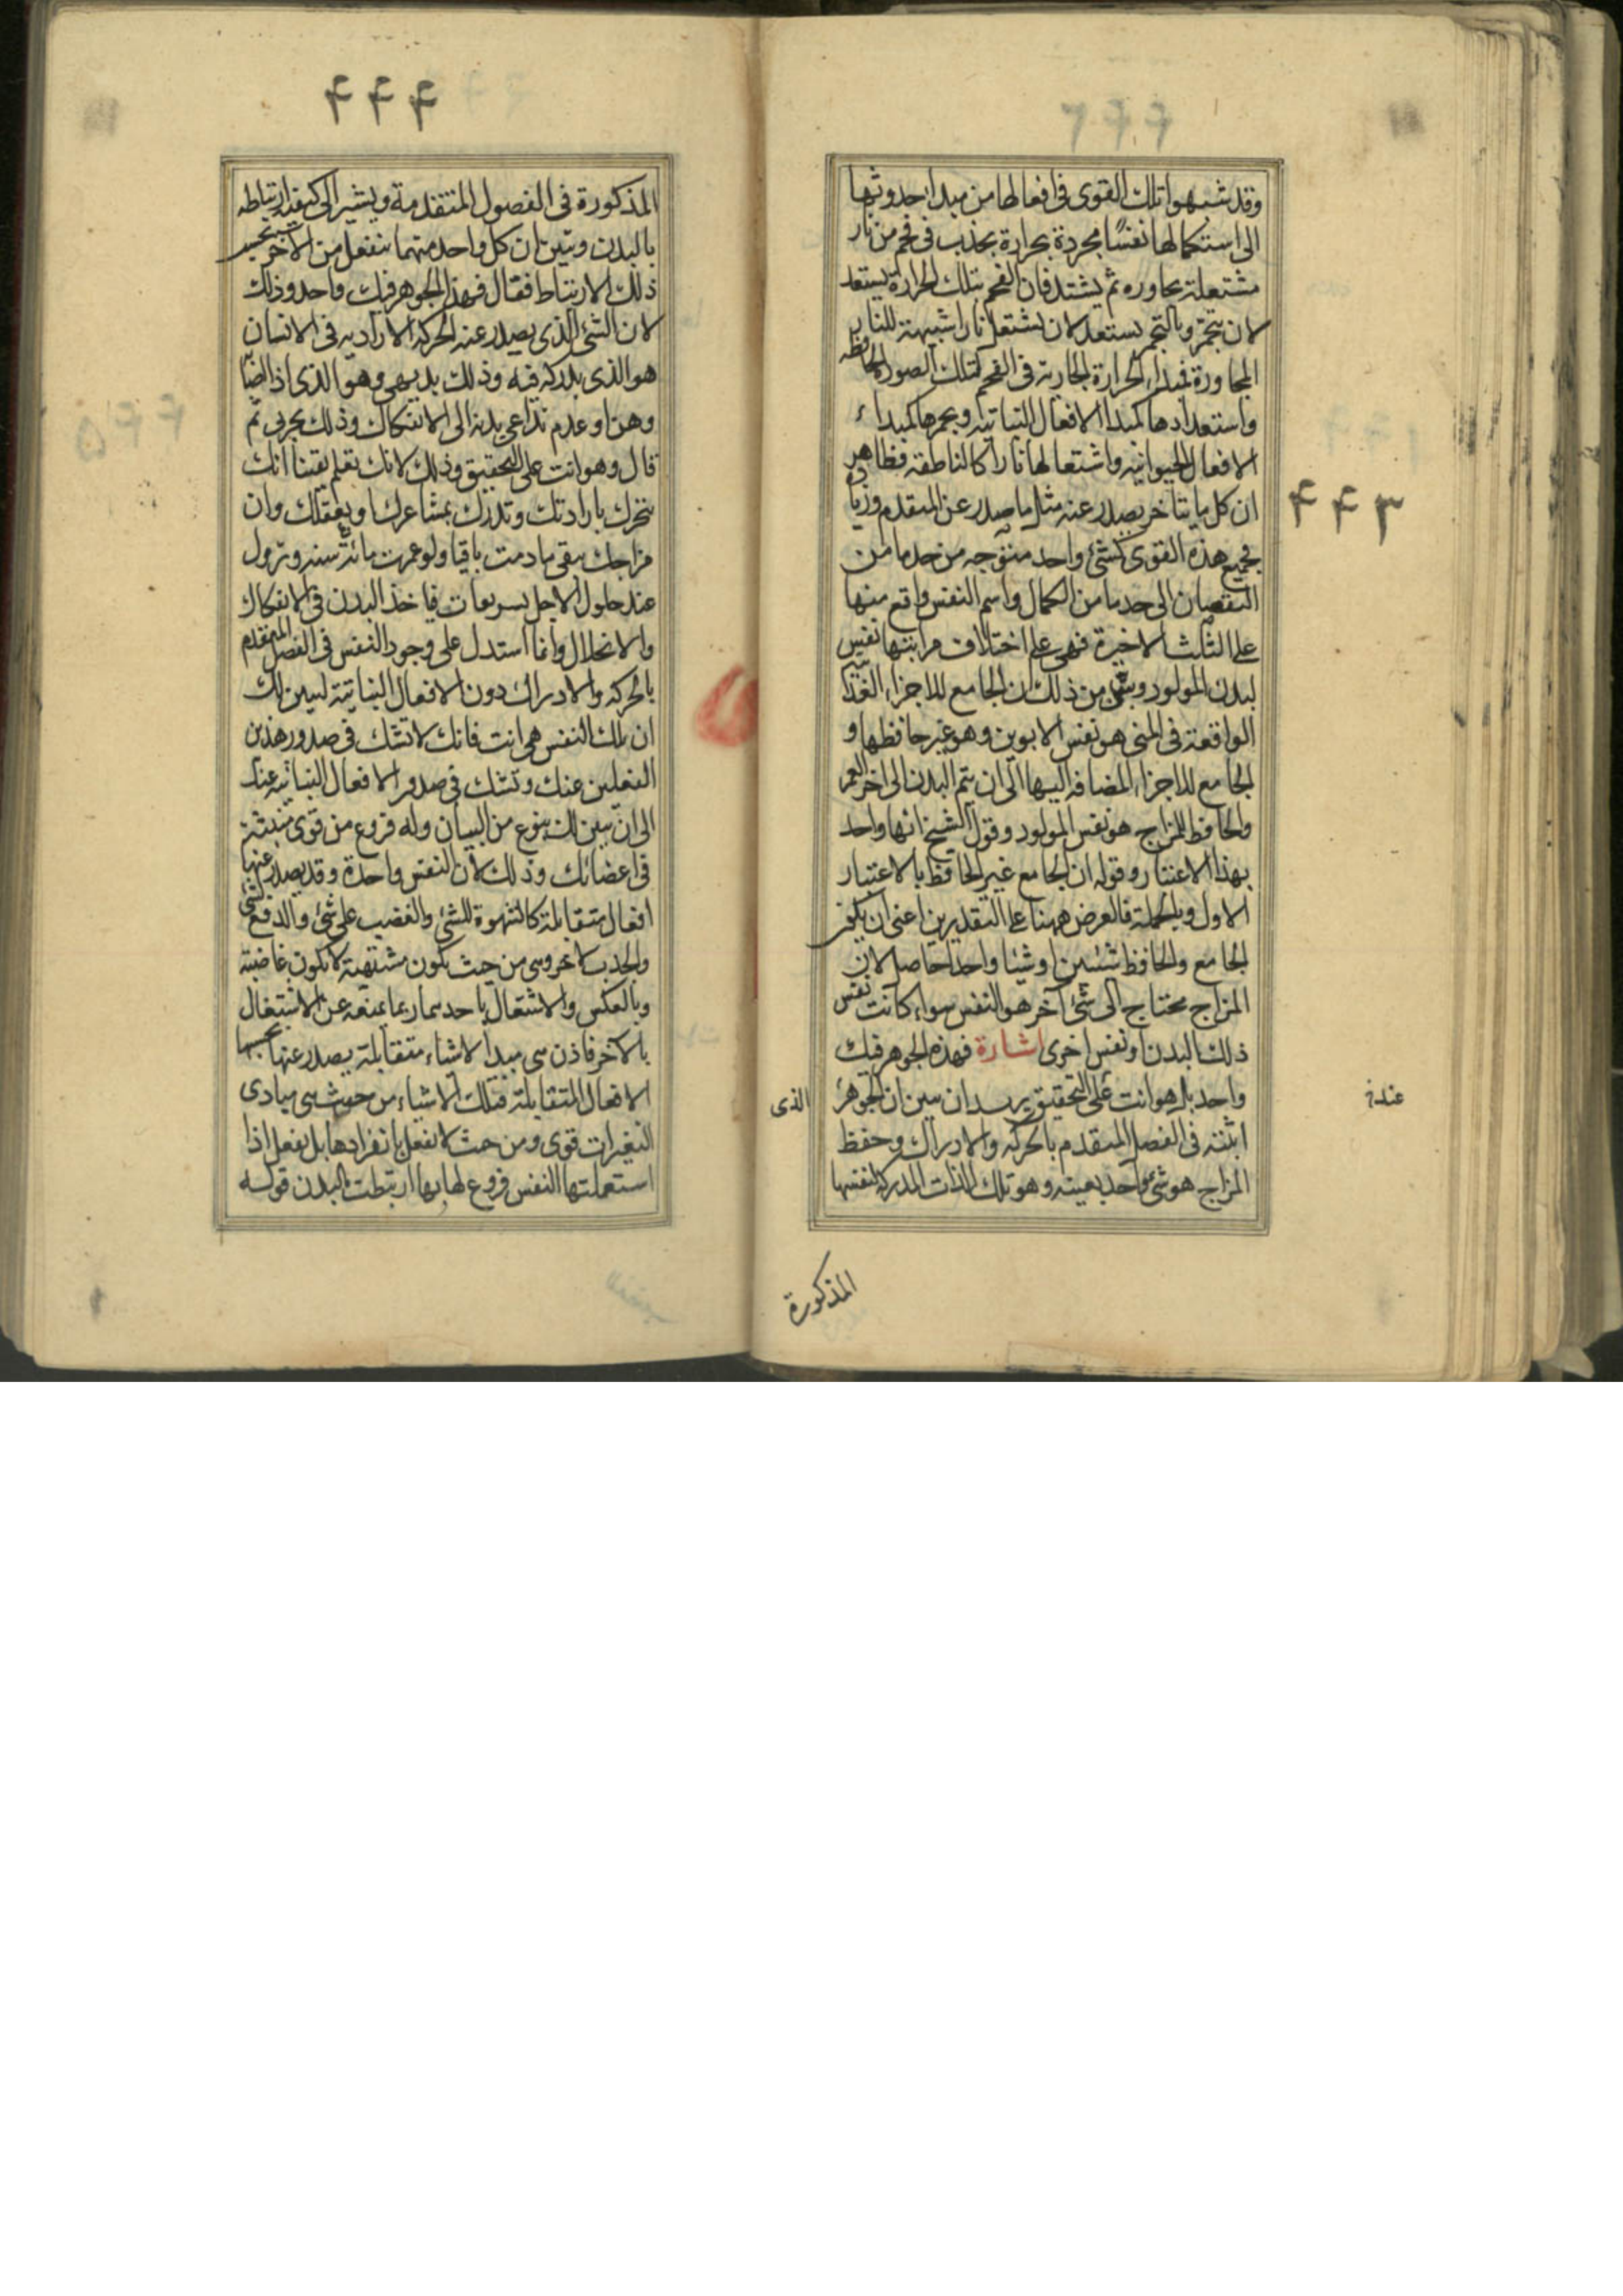 ۴۴۳
وقد شبهوا تلك القوى فى افعالها من مبدا حدوثها
الى استكمالها نفسًا مجردة بحرارة بحذب فى فحم من نار
مشتعلة بجاوره ثم يشتد فان الفحم بتلك الحرارة يستعد
لان يتجمر وبالتجمر يستعد لان يشتعل نارا شبيهة للنار
المجاورة فمبدا الحرارة الحادثة فى الفحم كتلك الصورة الحافظه
واستعدادها كمبدا الافعال النباتيه وبجمرها كمبداء
الافعال الحيوانيه واشتعالها نارا كالناطقه فظاهر
ان كل ما يتاخر يصدر عنه مثل ما صدر عن المتقدم وزيادة
فجميع هذه القوى كشئ واحد متوجه من حد ما من
النقصان الى حد ما من الكمال واسم النفس واقع منها
على الثلث الاخيرة فهى على اختلاف مراتبها نفس
لبدن المولود وتبين من ذلك ان الجامع للاجزاء الغذائية
الواقعة فى المنى هو نفس الابوين وهو غير حافظها و
الجامع للاجزاء المضافه اليها الى ان يتم البدن الى اخر العمر
والحافظ للمزاج هو نفس المولود وقول الشيخ انها واحد
بهذا الاعتبار وقوله ان الجامع غير الحافظ بالاعتبار
الاول وبالجملة فالغرض ههنا على التقديرين اعنى ان يكون
الجامع والحافظ شيئين او شيئا واحدا حاصل لان
المزاج محتاج الى شئ آخر هو النفس سواء كانت نفس
ذلك البدن او نفس اخرى اشارة فهذا الجوهر فيك
واحد بل هو انت على التحقيق يريد ان يبين ان الجوهر الذى
اثبته فى الفصل المتقدم بالحركه والادراك وحفظ
المزاج هو شئ واحد بعينه وهو تلك الذات المدركة لنفسها
المذكورة
۴۴۴
المذكورة فى الفصول المتقدمة ويشير الى كيفية ارتباطه
بالبدن وتبين ان كل واحد منهما ينفعل من الآخر بحسب
ذلك الارتباط فقال فهذا الجوهر فيك واحد وذلك
لان الشئ الذى يصدر عنه الحركه الاراديه فى الانسان
هو الذى يدركه فيه وذلك بديهى وهو الذى اذا اضا
وهن او عدم تداعى بدنه الى الانفكاك وذلك تجربى ثم
قال وهو انت على التحقيق وذلك لانك تعلم يقينا انك
تتحرك بارادتك وتدرك بمشاعرك او بعقلك وان
مزاجك يبقى ما دمت باقيا ولو عمرت مائة سنه وتزول
عند حلول الاجل بسريعات فاخذ البدن فى الانفكاك
والانحلال وانما استدل على وجود النفس فى الفصل المتقدم
بالحركه والادراك دون الافعال النباتية ليبين لك
ان تلك النفس هى انت فانك لا تشك فى صدور هذين
الفعلين عنك وتشك فى صدور الافعال النباتيه عنك
الى ان يبين لك بنوع من البيان وله فروع من قوى منبثة
فى اعضائك وذلك لان النفس واحدة وقد يصدر عنها
افعال متقابلة كالشهوة للشئ والغضب على شئ والدفع لشئ
والجذب لآخر وهى من حيث يكون مشتهية لا يكون غاضبة
وبالعكس والاشتغال باحدهما ربما يمنعه عن الاشتغال
بالآخر فاذن هى مبدا لاشياء متقابلة يصدر عنها بحسبها
الافعال المتقابلة فتلك الاشياء من حيث هى مبادى
التغيرات قوى ومن حيث لا تفعل بانفرادها بل تفعل اذا
استعملتها النفس فروع لها بها ارتبطت بالبدن قوله